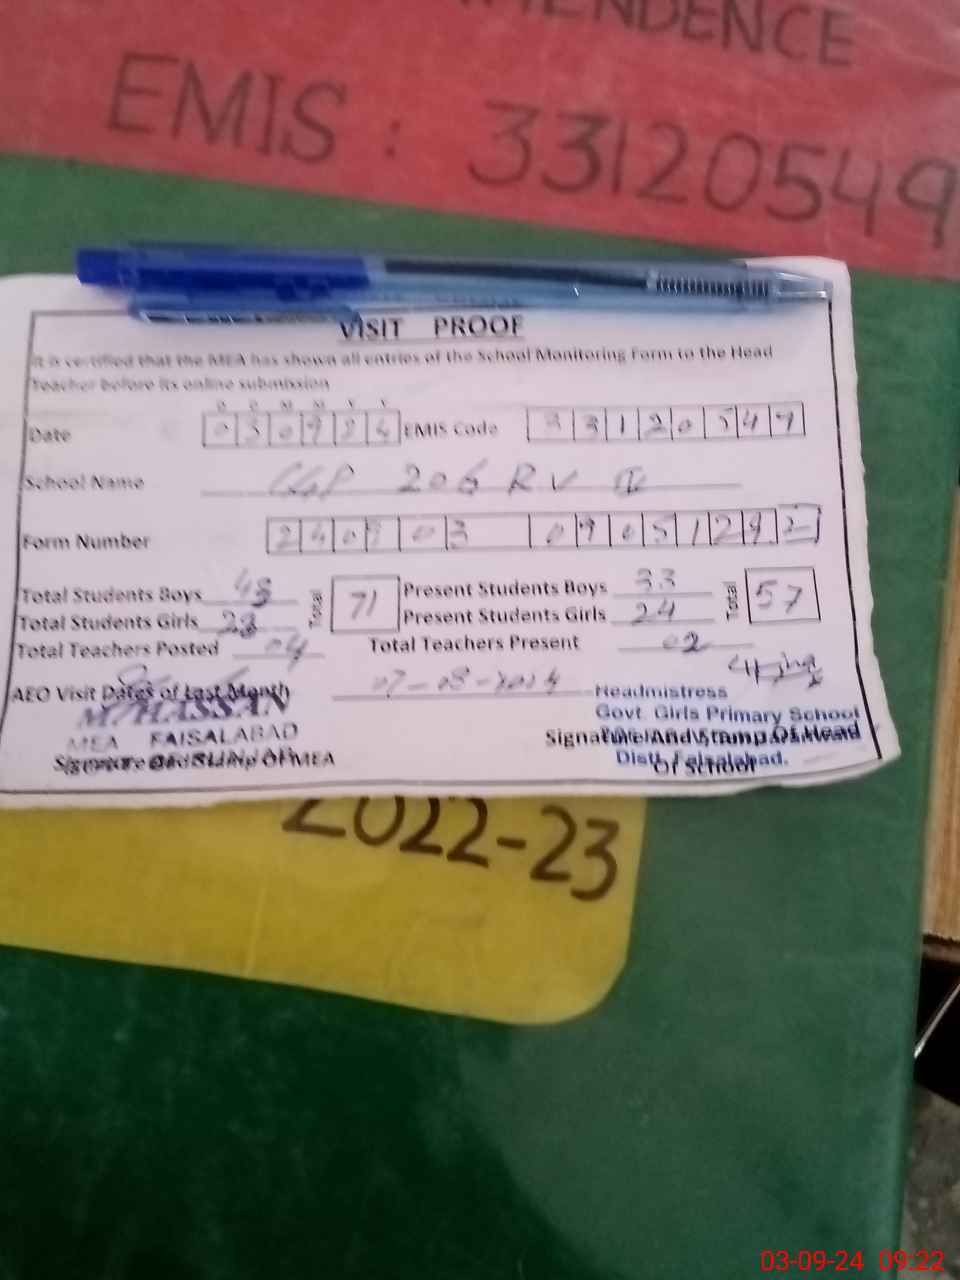 ENDENCE
EMIS : 33120549
VISIT PROOF
It is certified that the MEA has shown all entries of the School Monitoring Form to the Head
Teacher before its online submission
D D M M Y Y
Date 030924 EMIS Code 33120549
School Name 206 RB
Form Number
Total Students Boys 48 Total 71 Present Students Boys 33 Total 57
Total Students Girls 23 Present Students Girls 24
Total Teachers Posted 04 Total Teachers Present 02
AEO Visit Dates of Last Month 07-08-2024
M. HASSAN
MEA FAISALABAD
Signature And Stamp Of MEA
Headmistress
Govt. Girls Primary School
Signature And Stamp Of Head
Distt. Faisalabad.
Of School
2022-23
03-09-24 09:22